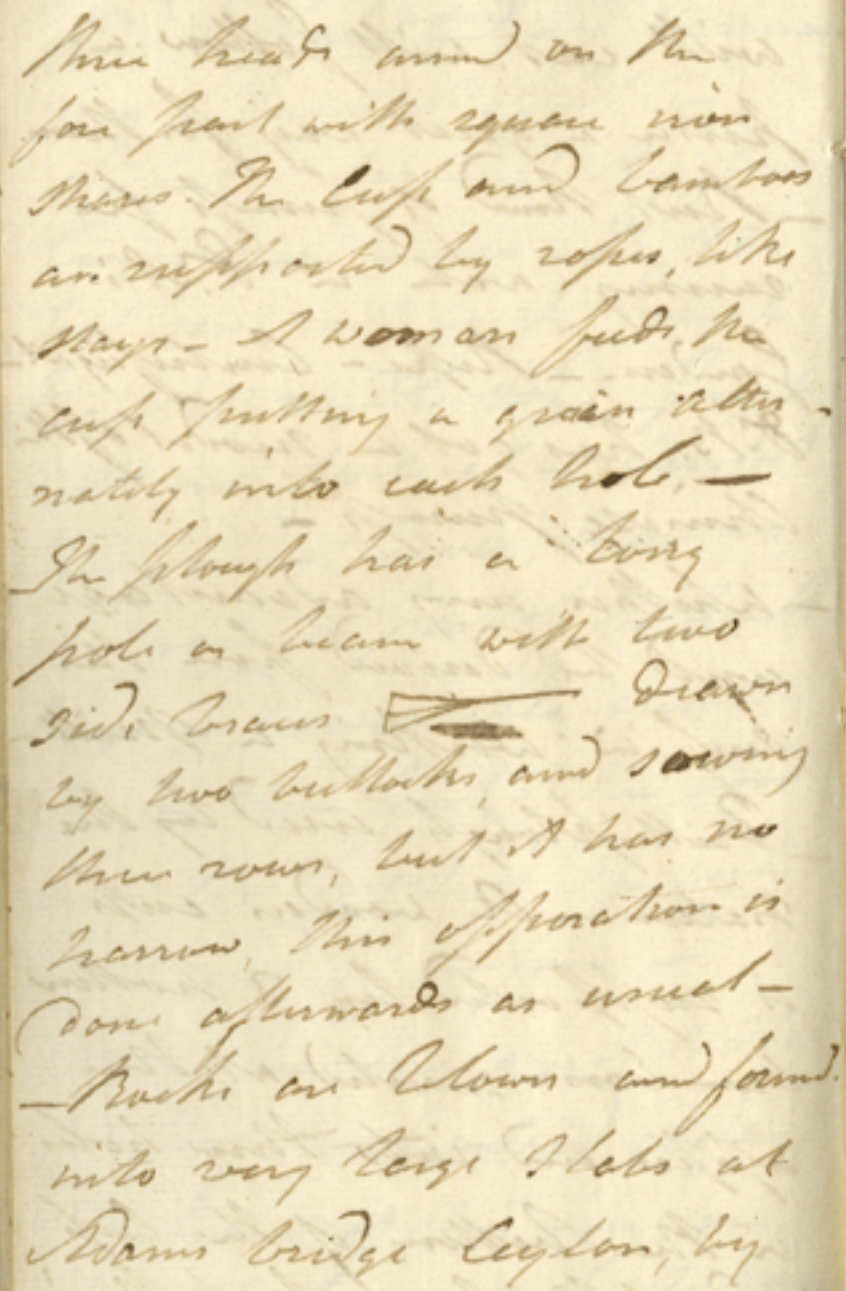 three heads armed on the
fore part with square iron
shares. The Cup and bamboos
are supported by ropes, like
stays - A woman feeds the
cup putting a grain alter-
nately into each hole, —
The plough has a long
pole or beam with two
side braces drawn
by two bullocks, and sowing
three rows, but it has no
harrow, this opporation is
done afterwards as usual —
— Rocks are blown and formd
into very large Slabs at
Adams bridge Ceylon, by